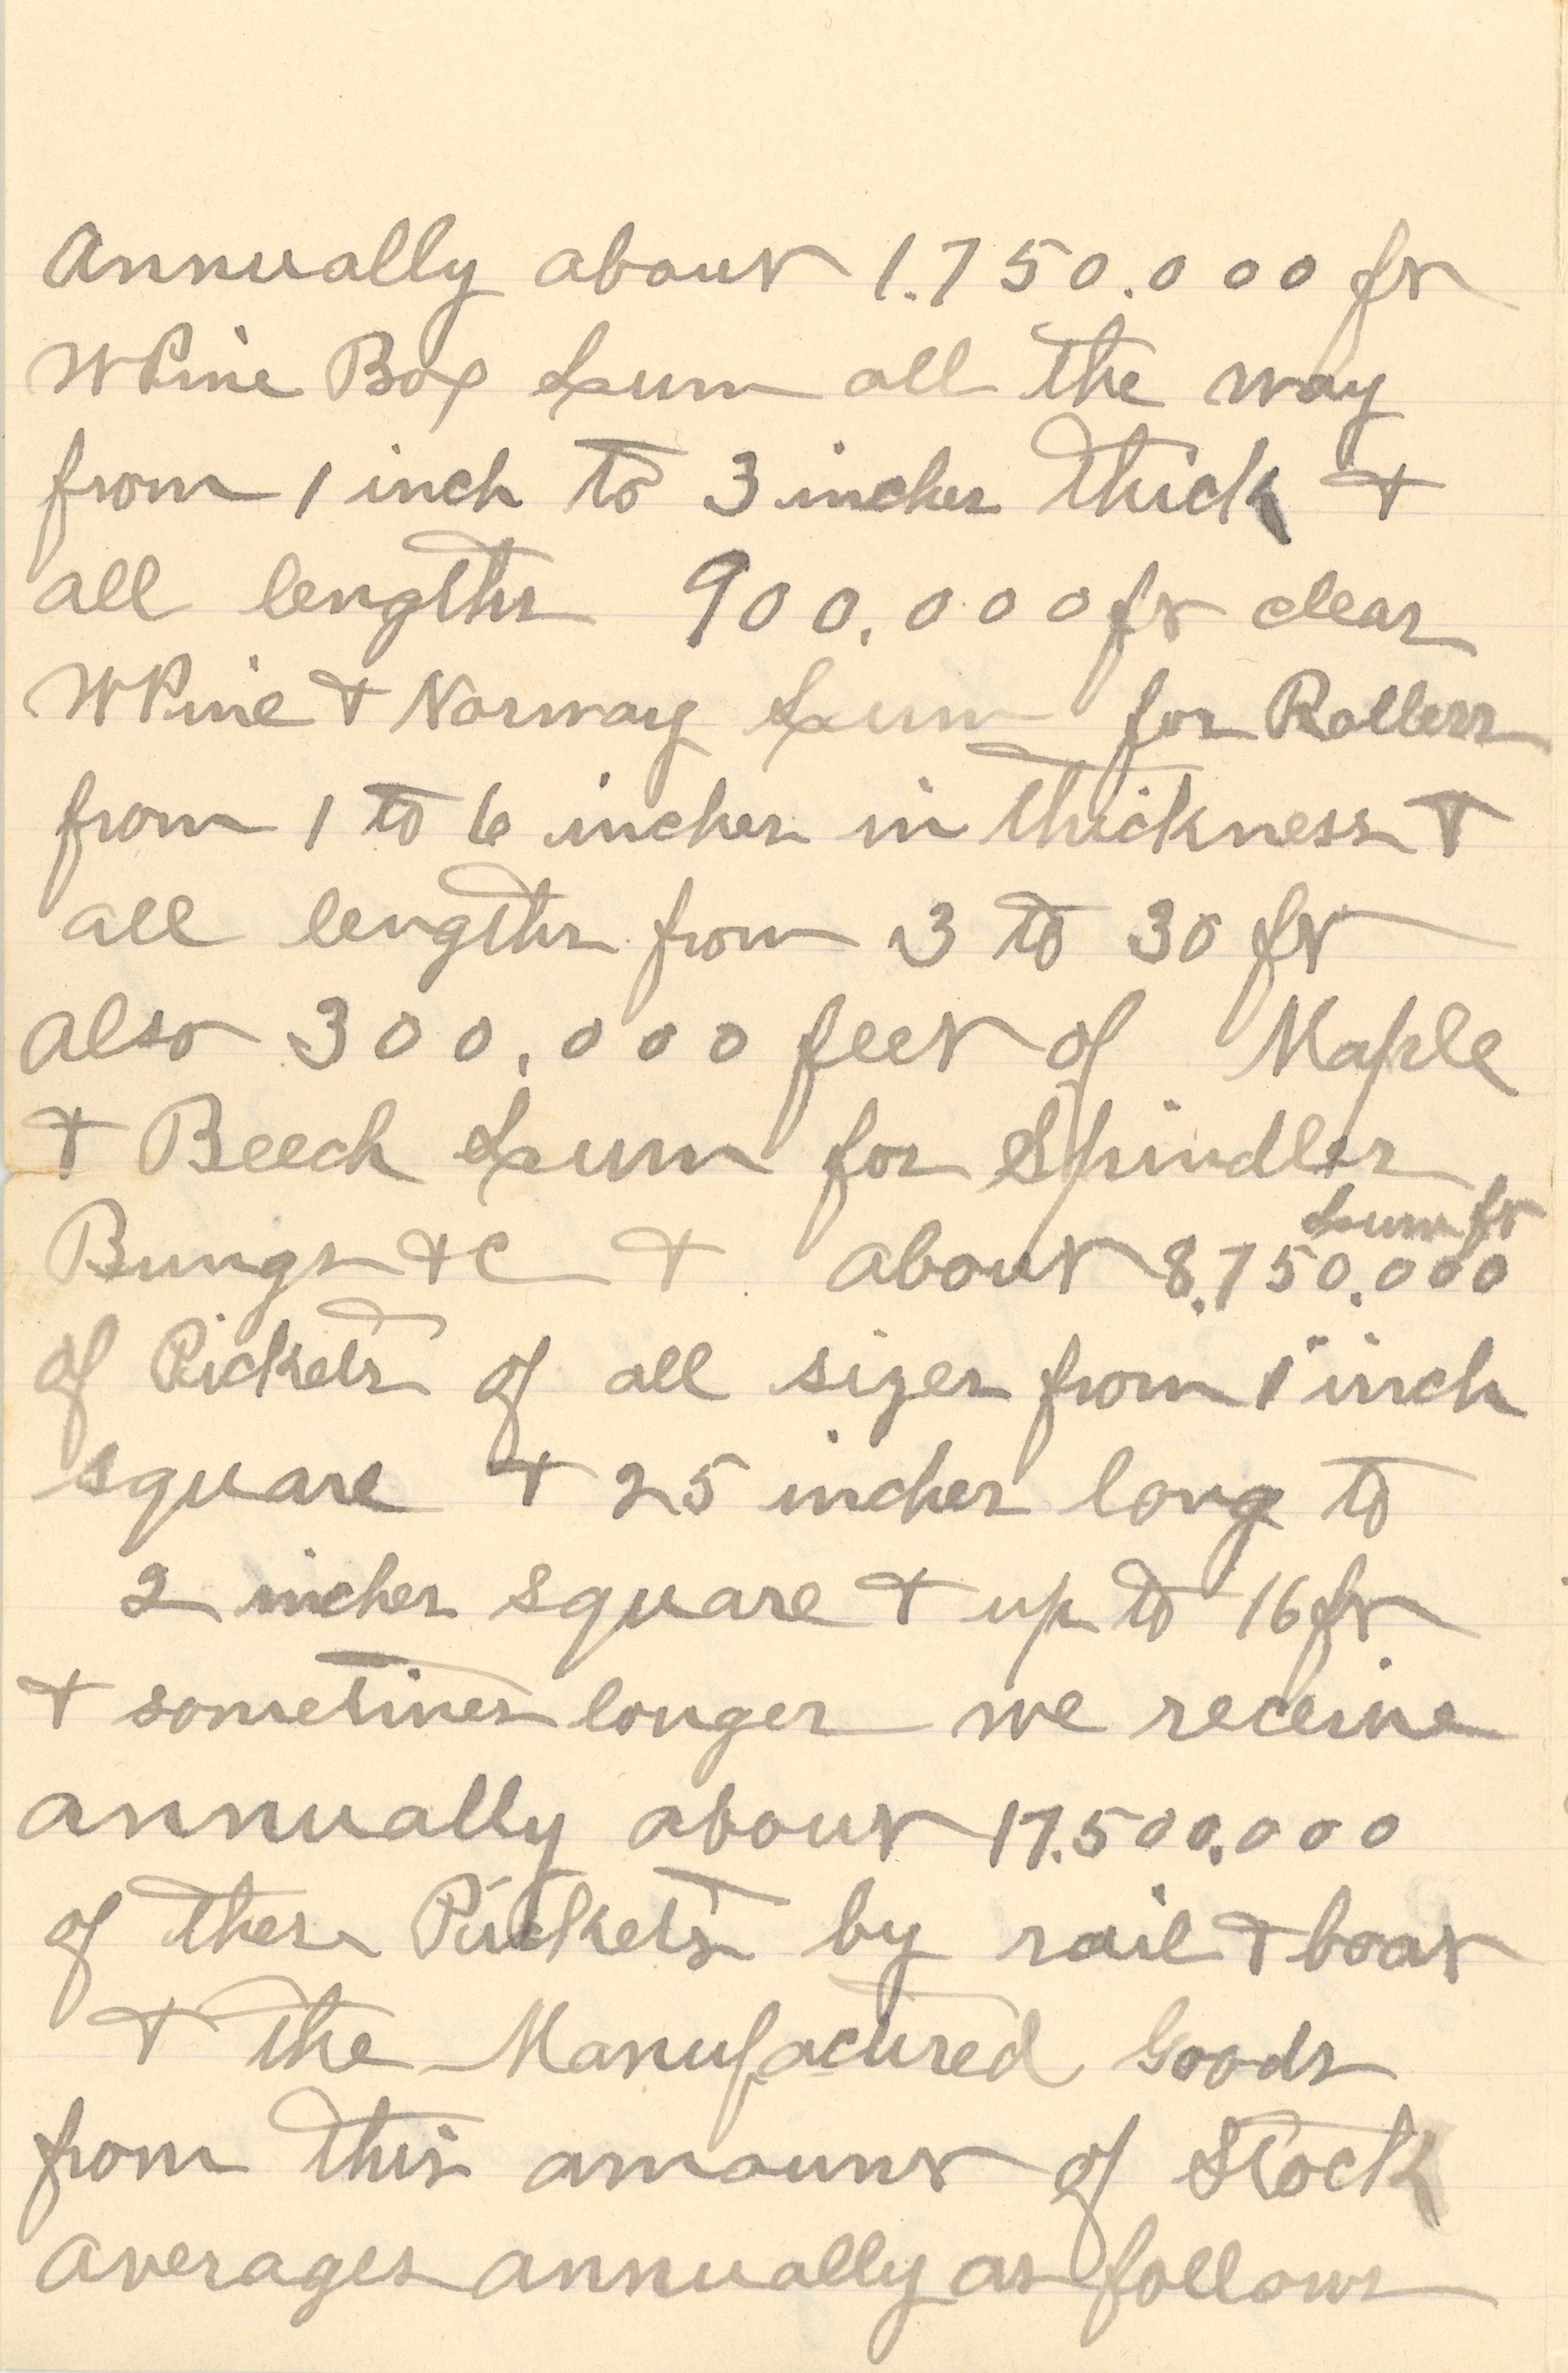 Annually about 1.750.000 ft
W Pine Box Lum all the way
from 1 inch to 3 inches thick &
all lengths 900.000 ft clear
W Pine & Norway Lum for Rollers
from 1 to 6 inches in thickness &
all lengths from 3 to 30 ft
also 300.000 feet of Maple
& Beech Lum for Spindles
Lum ft
Bungs &C & about 8.750.000
of Pickets of all sizes from 1 inch
square & 25 inches long to
2 inches square & up to 16 ft
& sometimes longer we receive
annually about 17.500.000
of these Pickets by rail & boat
& the Manufactured Goods
from this amount of Stock
averages annually as follows